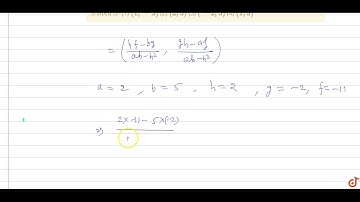 = ( hf-bg / ab-h² , gh-af / ab-h² )
a = 2 , b = 5 , h = 2 , g = -2, f = -11
⇒) 2×-11 - 5×(-2)